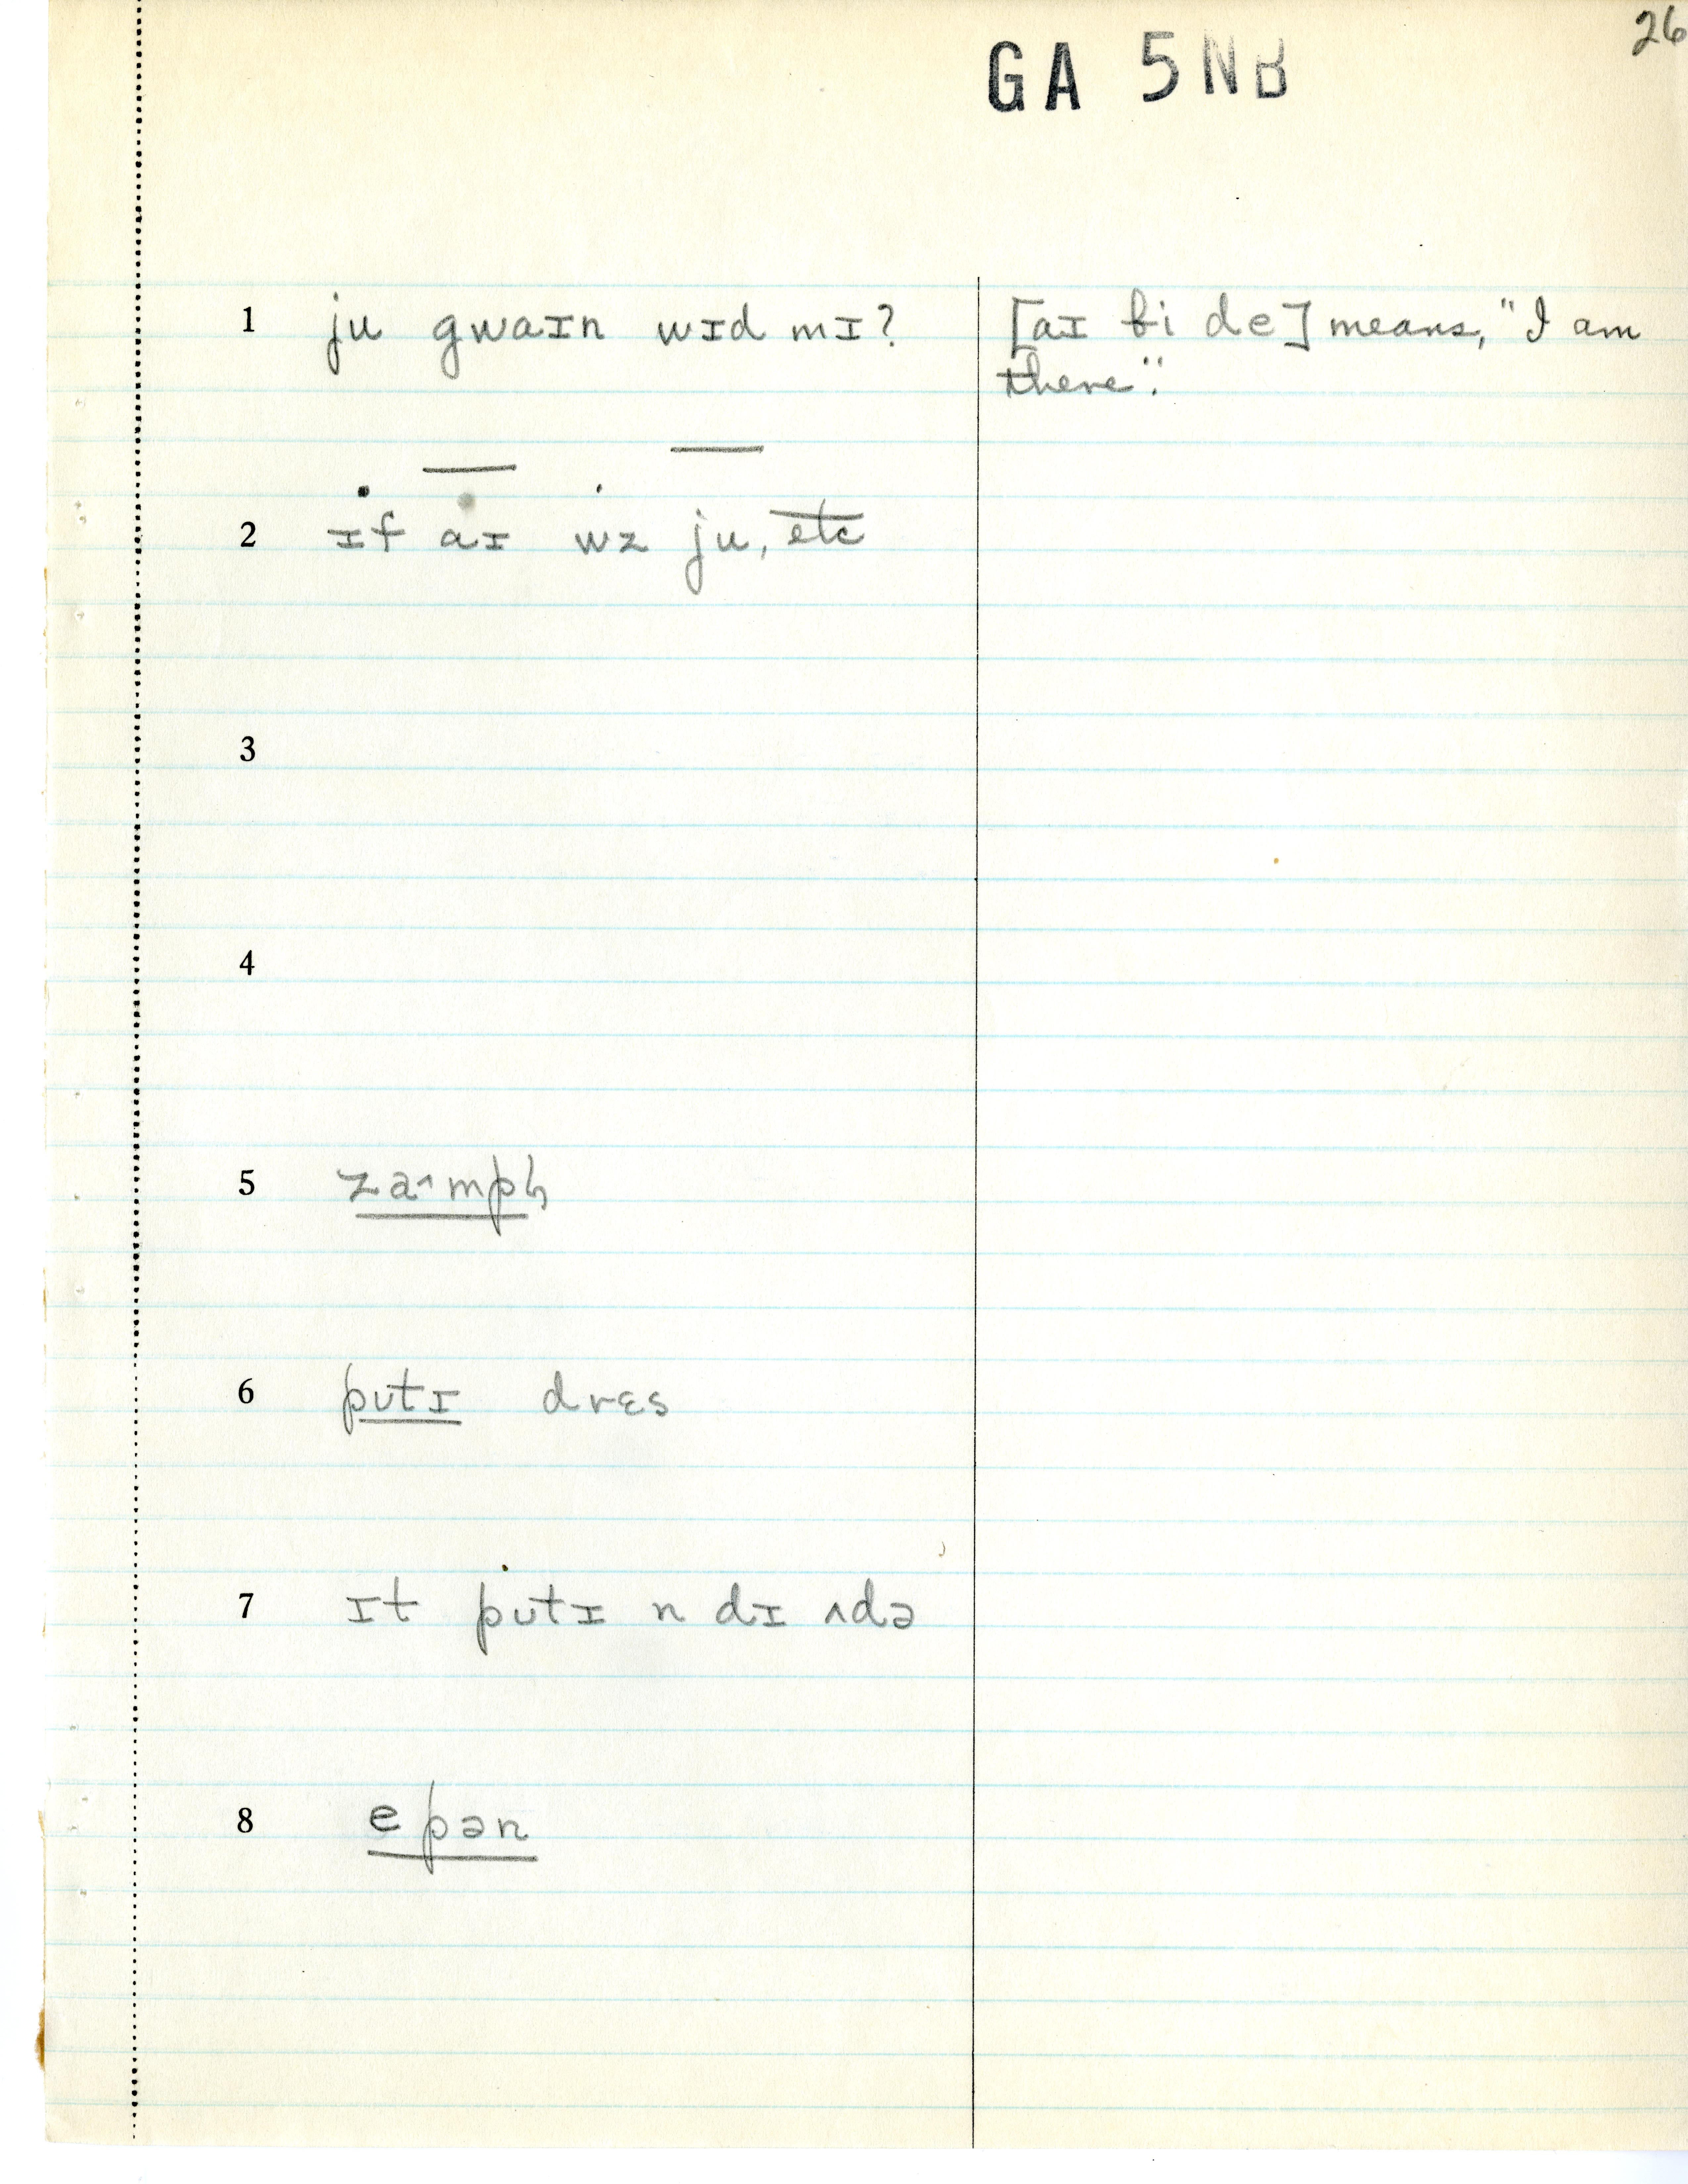 26
GA 5NB
1 ju gwaɪn wɪd mɪ? [aɪ bi de] means, "I am
there".
2 ɪf aɪ wz ju, etc
3
4
5 za˄mpɦ
6 pʊtɪ drɛs
7 ɪt pʊtɪ n dɪ ʌdə
8 epən